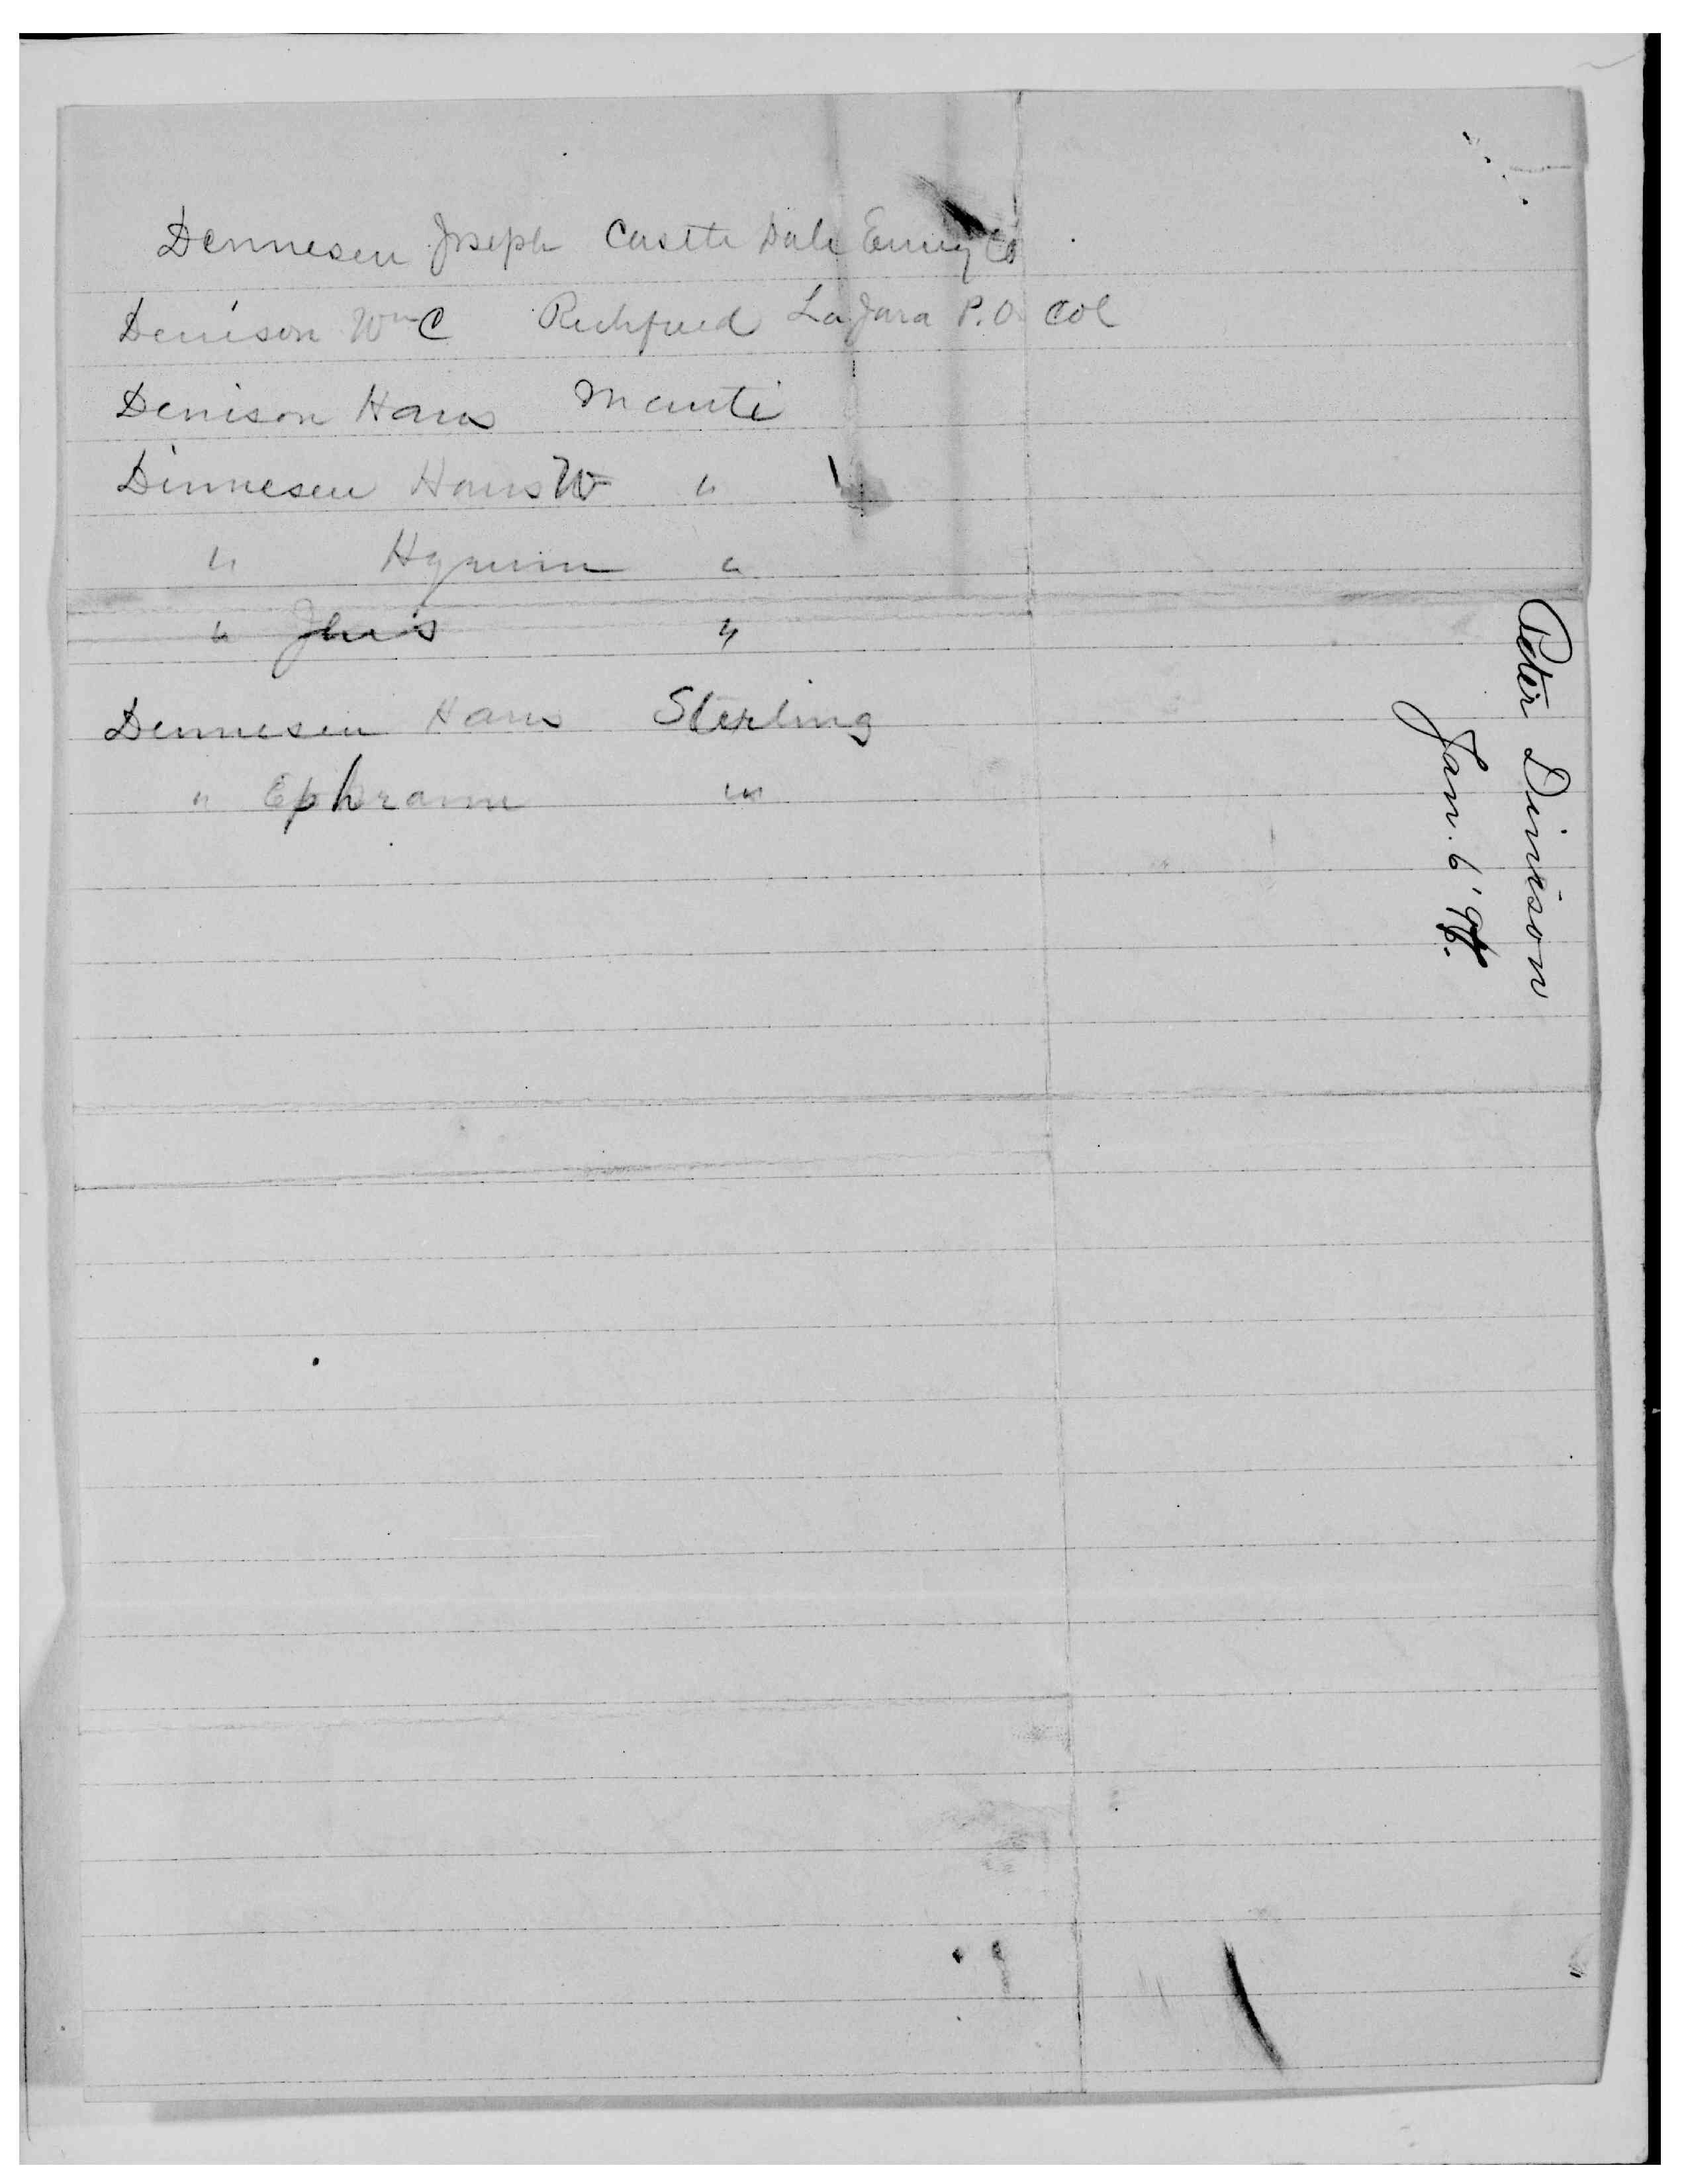 Dennesen Joseph Castle Dale Emery Co
Denison Wm C Richfield La Jara P.O. Col
Denison Hans Manti
Dinnesen Hans W "
" Hyrum "
" Jens "
Dennesen Hans Sterling
" Ephraim "
Peter Dinnison
Jan. 6 '96.